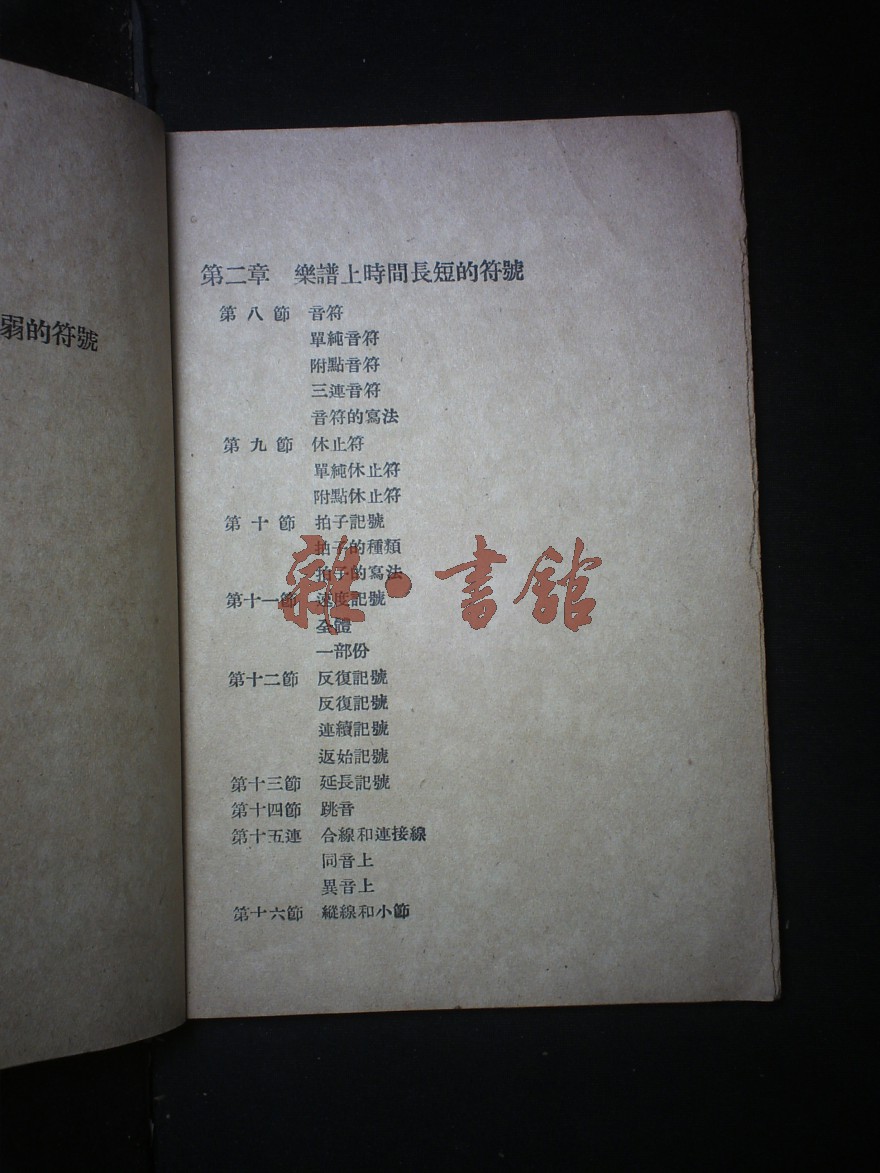 弱的符號
第二章 樂譜上時間長短的符號
第八節 音符
單純音符
附點音符
三連音符
音符的寫法
第九節 休止符
單純休止符
附點休止符
第十節 拍子記號
拍子的種類
拍子的寫法
第十一節 速度記號
全體
一部份
第十二節 反復記號
反復記號
連續記號
返始記號
第十三節 延長記號
第十四節 跳音
第十五連 合線和連接線
同音上
異音上
第十六節 縱線和小節
雜·書館